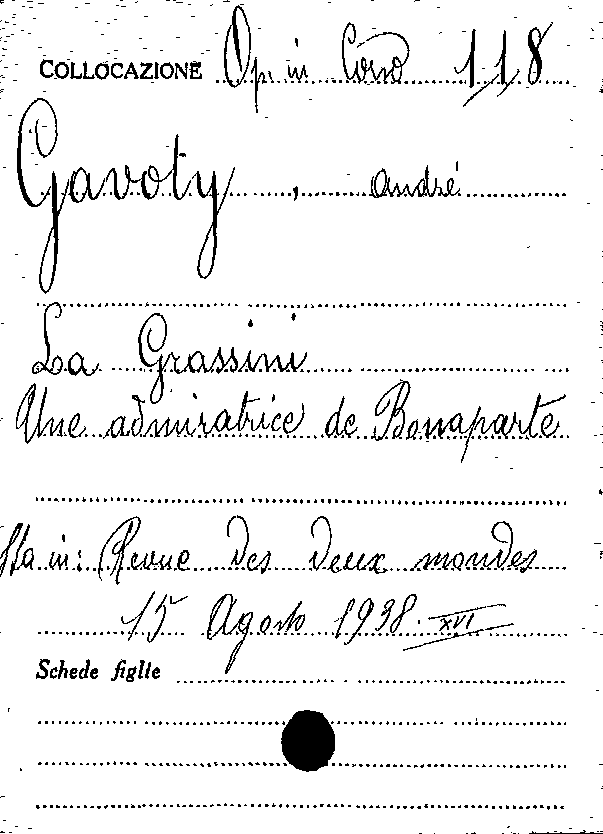 COLLOCAZIONE Op. in Corso 118
Gavoty, André
La Grassini
Une admiratrice de Bonaparte
Sta in: Revue des deux mondes
15 Agosto 1938. XVI
Schede figlie